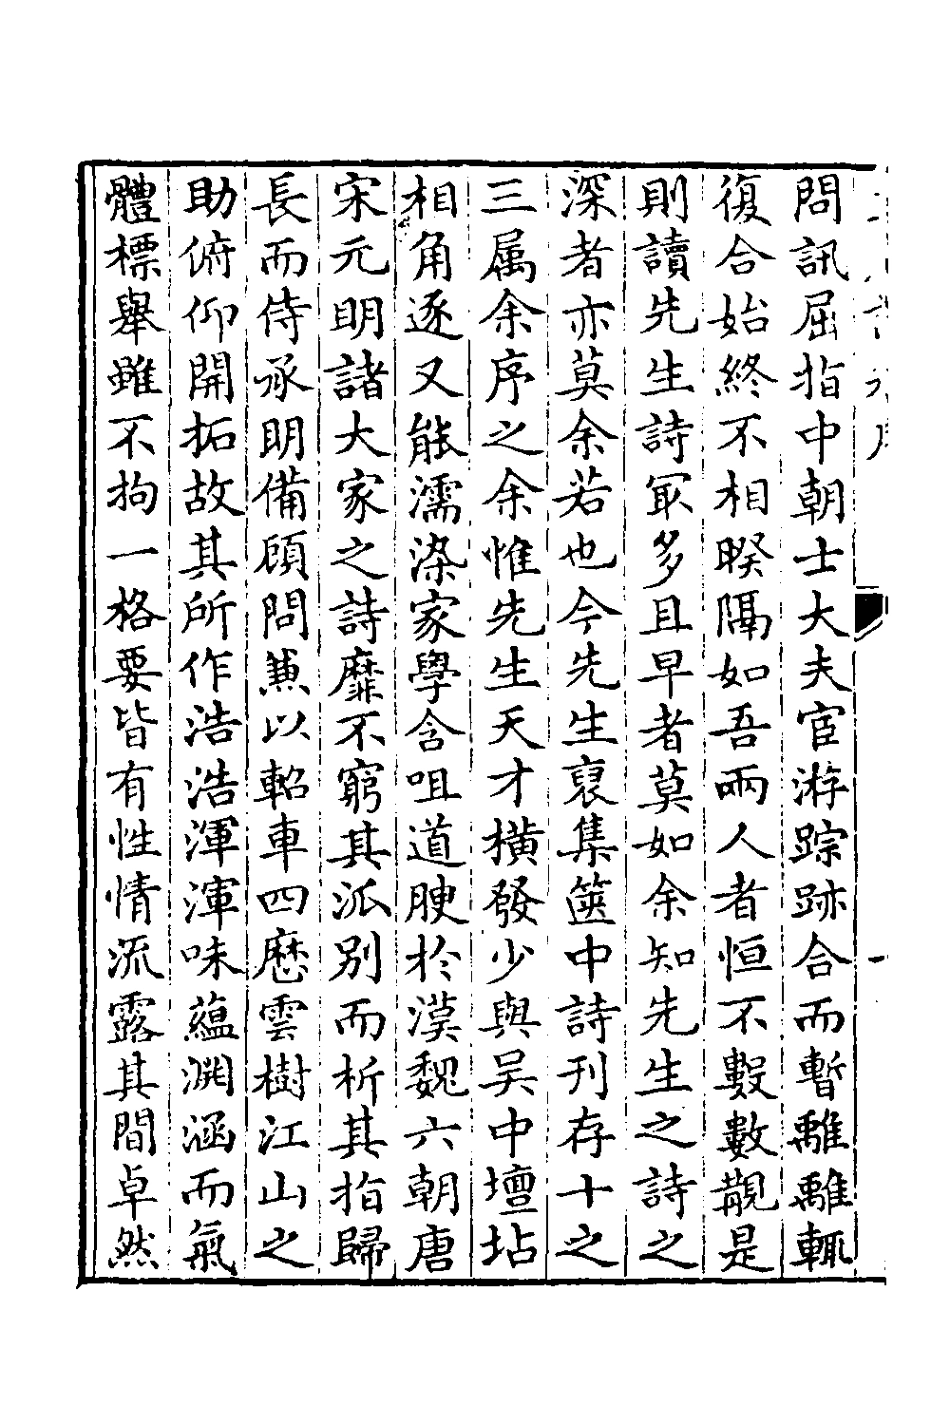 問訊屈指中朝士大夫宦游踪跡合而暫離離輒
復合始終不相暌隔如吾兩人者恒不數數覯是
則讀先生詩㝡多且早者莫如余知先生之詩之
深者亦莫余若也今先生裒集篋中詩刊存十之
三属余序之余惟先生天才橫發少與吴中壇坫
相角逐又能濡染家學含咀道腴於漢魏六朝唐
宋元明諸大家之詩靡不窮其派别而析其指歸
長而侍承明備顧問兼以軺車四歷雲樹江山之
助俯仰開拓故其所作浩浩渾渾味蘊淵涵而氣
體標舉雖不拘一格要皆有性情流露其間卓然